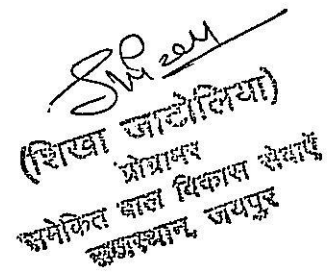 (शिखा जाटोलिया)
प्रोग्रामर
समेकित बाल विकास सेवाएँ
राजस्थान, जयपुर